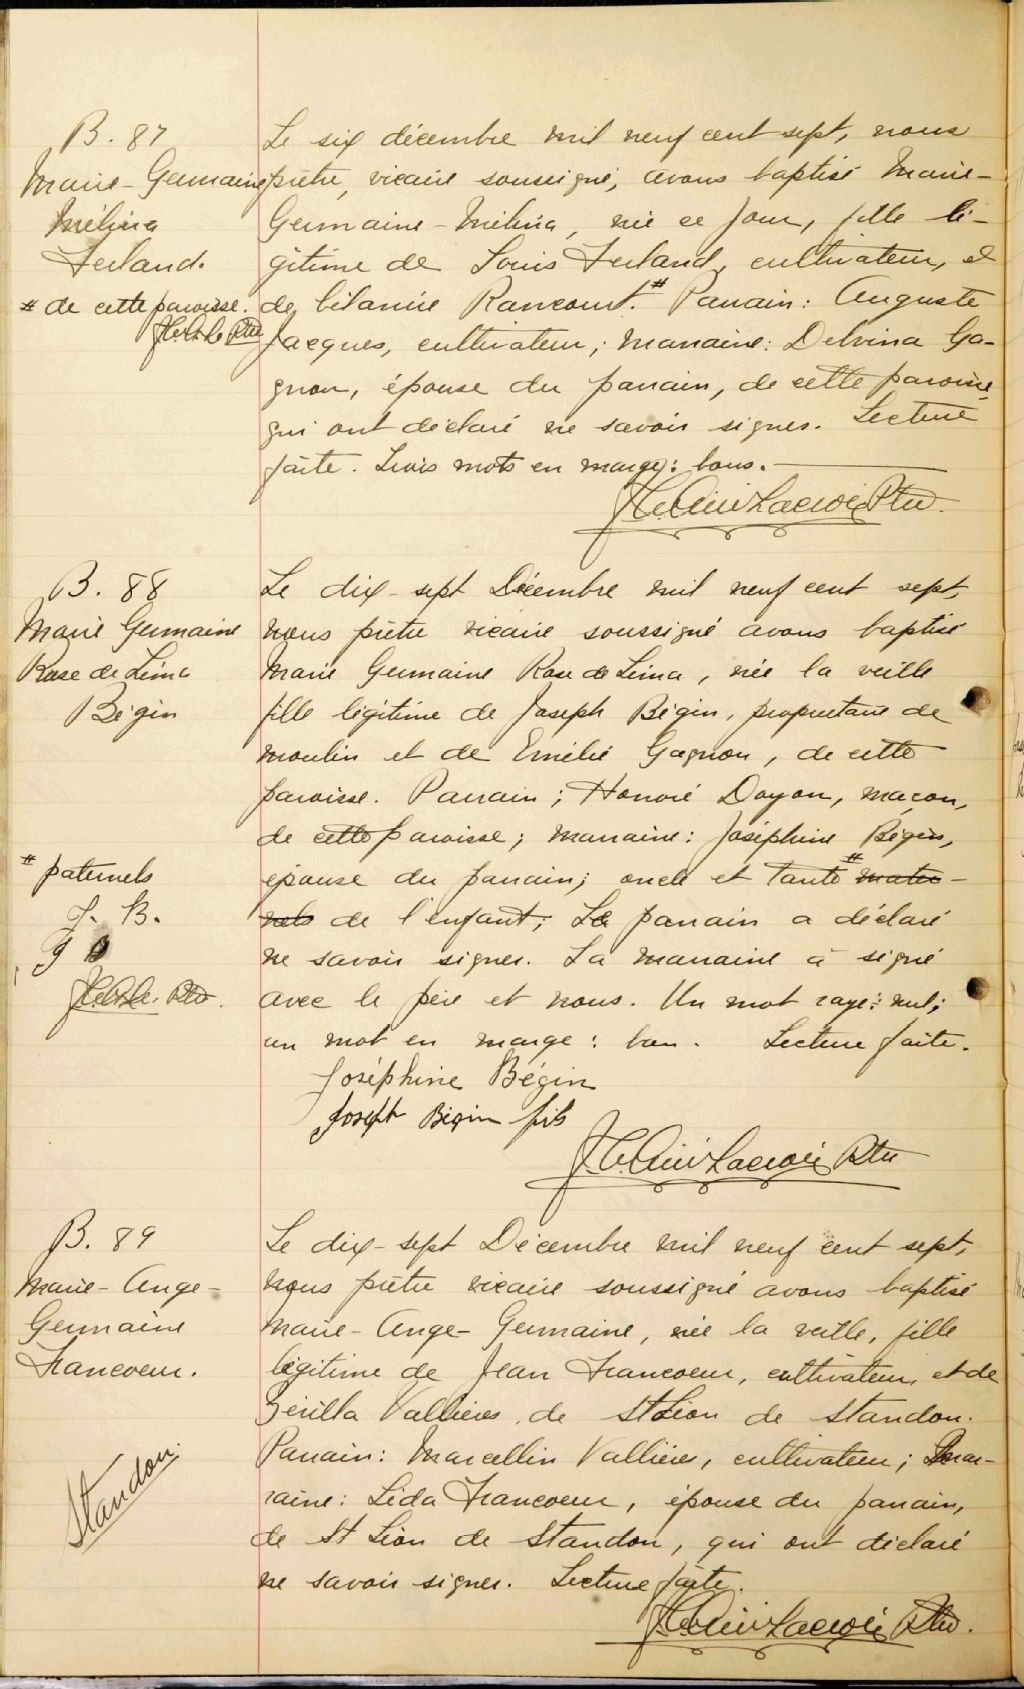 B. 87
Marie-Germaine
Mélina
Ferland.
# de cette paroisse.
Le six décembre mil neuf cent sept, nous
prêtre, vicaire soussigné, avons baptisé Marie-
Germaine-Mélina, née ce jour, fille lé-
gitime de Louis Ferland, cultivateur, et
de Célanire Rancourt.# Parrain: Auguste
Jacques, cultivateur; marraine: Delvina Ga-
gnon, épouse du parrain, de cette paroisse,
qui ont déclaré ne savoir signer. Lecture
faite. Trois mots en marge: bons.
Lacroix Ptre.
B. 88
Marie Germaine
Rose de Lima
Bégin
# paternels
J. B.
Le dix-sept Décembre mil neuf cent sept,
nous prêtre vicaire soussigné avons baptisé
Marie Germaine Rose de Lima, née la veille
fille légitime de Joseph Bégin, propriétaire de
moulin et de Emélie Gagnon, de cette
paroisse. Parrain; Honoré Doyon, maçon,
de cette paroisse; marraine: Joséphine Bégin,
épouse du parrain; oncle et tante # mater-
nels de l'enfant; Le parrain a déclaré
ne savoir signer. La marraine à signé
avec le père et nous. Un mot rayé: nul;
un mot en marge: bon. Lecture faite.
Joséphine Bégin
Joseph Bégin fils
Lacroix Ptre
B. 89
Marie-Ange-
Germaine
Francoeur.
Standon
Le dix-sept Décembre mil neuf cent sept,
nous prêtre vicaire soussigné avons baptisé
Marie-Ange-Germaine, née la veille, fille
légitime de Jean Francoeur, cultivateur, et de
Vallières, de St Léon de Standon.
Parrain: Marcellin Vallières, cultivateur; Mar-
raine: Léda Francoeur, épouse du parrain,
de St Léon de Standon, qui ont déclaré
ne savoir signer. Lecture faite.
Lacroix Ptre.